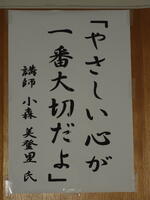 「やさしい心が
一番大切だよ」
講師 小森 美登里 氏